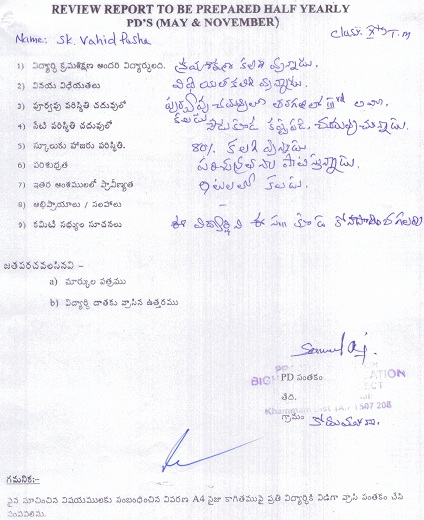 REVIEW REPORT TO BE PREPARED HALF YEARLY
PD'S (MAY & NOVEMBER)
Name: SK. Vahid Pasha Class: Xth T.m
1) విద్యార్థి క్రమశిక్షణ అందరి విద్యార్థులది. క్రమశిక్షణ కలిగి వున్నాడు.
2) వినయ విధేయతలు విధేయత కలిగి వున్నాడు.
3) పూర్వపు పరిస్థితి చదువులో
4) నేటి పరిస్థితి చదువులో నేడు కూడ కష్టపడి చదువుచున్నాడు.
5) స్కూలుకు హాజరు పరిస్థితి. 80% కలిగి వున్నాడు
6) పరిశుభ్రత పరిశుభ్రతను పాటిస్తున్నాడు.
7) ఇతర అంశములలో ప్రావీణ్యత
8) అభిప్రాయాలు / సలహాలు -
9) కమిటీ సభ్యుల సూచనలు ఈ విద్యార్థిని ఈ సం॥ కూడ కొనసాగించగలరు
జతపరచవలసినవి :-
a) మార్కుల పత్రము
b) విద్యార్థి దాతకు వ్రాసిన ఉత్తరము
PD సంతకం
తేది.
Khammam Dist (A.P) 507 208
గ్రామం
గమనిక:-
పైన సూచించిన విషయములకు సంబంధించిన వివరణ A4 సైజు కాగితముపై ప్రతి విద్యార్థికి విడిగా వ్రాసి సంతకం చేసి
పంపవలెను.